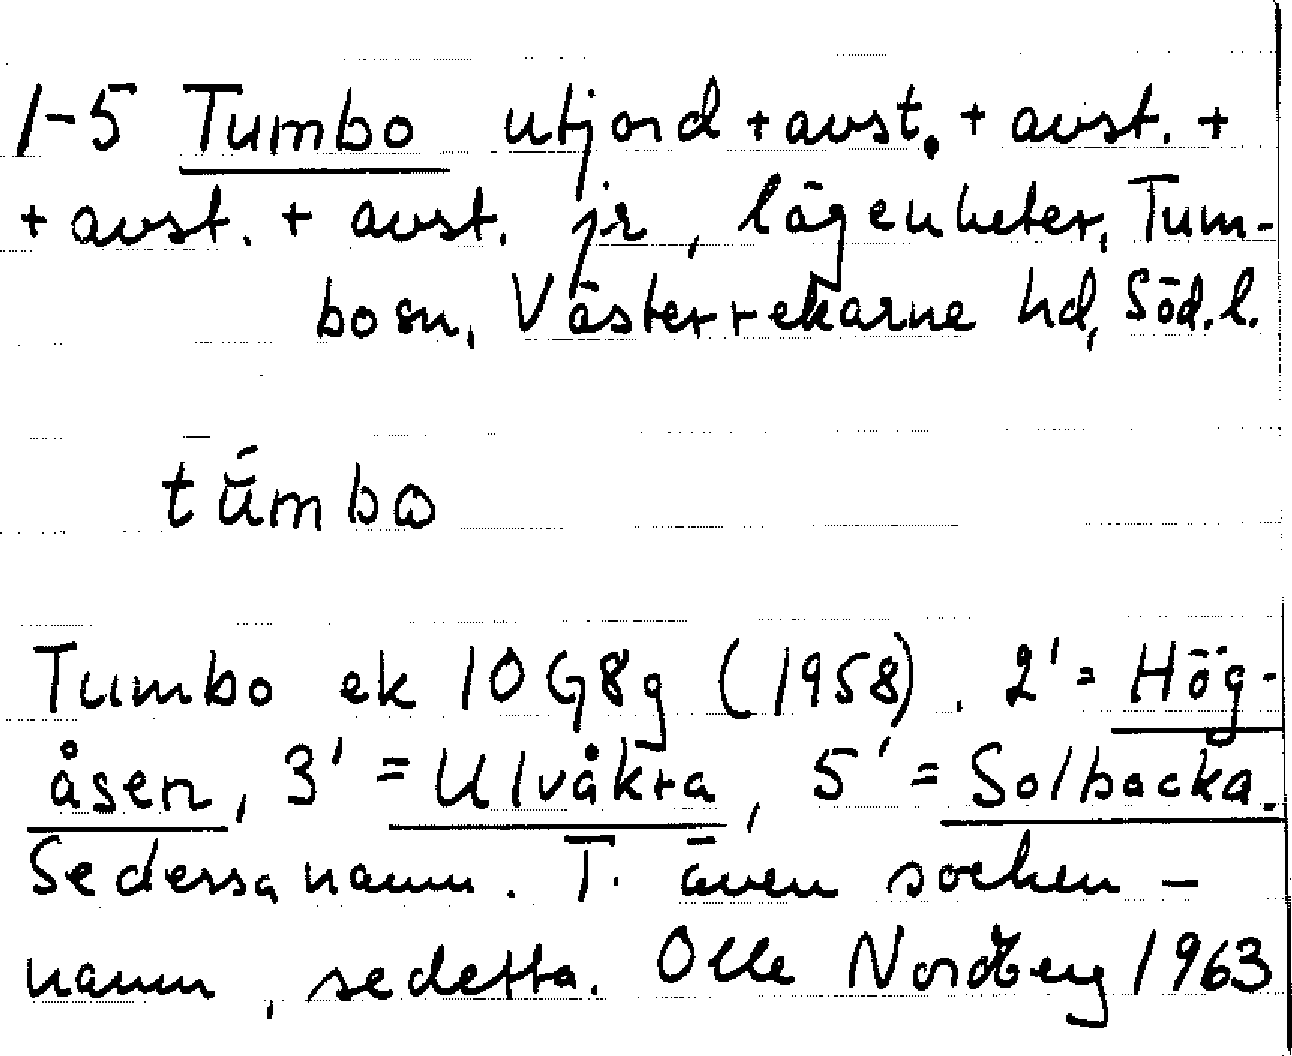 1-5 Tumbo utjord + avst. + avst. +
+ avst. + avst. jr, lägenheter, Tum-
bo sn, Västerrekarne hd, Söd. l.
túmbo
Tumbo ek 10G8g (1958). 2' = Hög-
åsen, 3' = Ulvåkra, 5' = Solbacka.
Se dessa namn. T. även socken-
namn, se detta. Olle Nordberg 1963